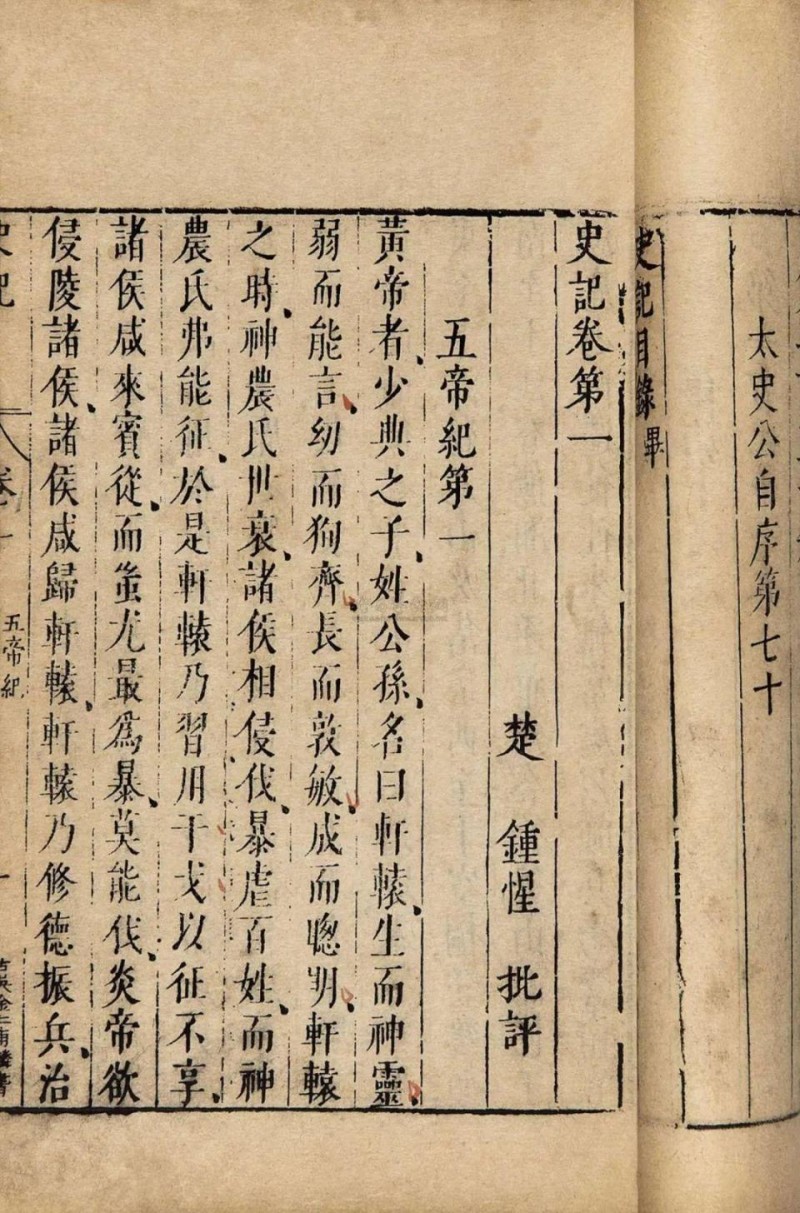 太史公自序第七十
史記目錄畢
史記卷第一
楚 鍾惺 批評
五帝紀第一
黃帝者少典之子姓公孫名曰軒轅生而神靈
弱而能言幼而狥齊長而敦敏成而聰明軒轅
之時神農氏世衰諸侯相侵伐暴虐百姓而神
農氏弗能征於是軒轅乃習用干戈以征不享
諸侯咸來賓從而蚩尤最為暴莫能伐炎帝欲
侵陵諸侯諸侯咸歸軒轅軒轅乃修德振兵治
史記 卷一 五帝紀 一